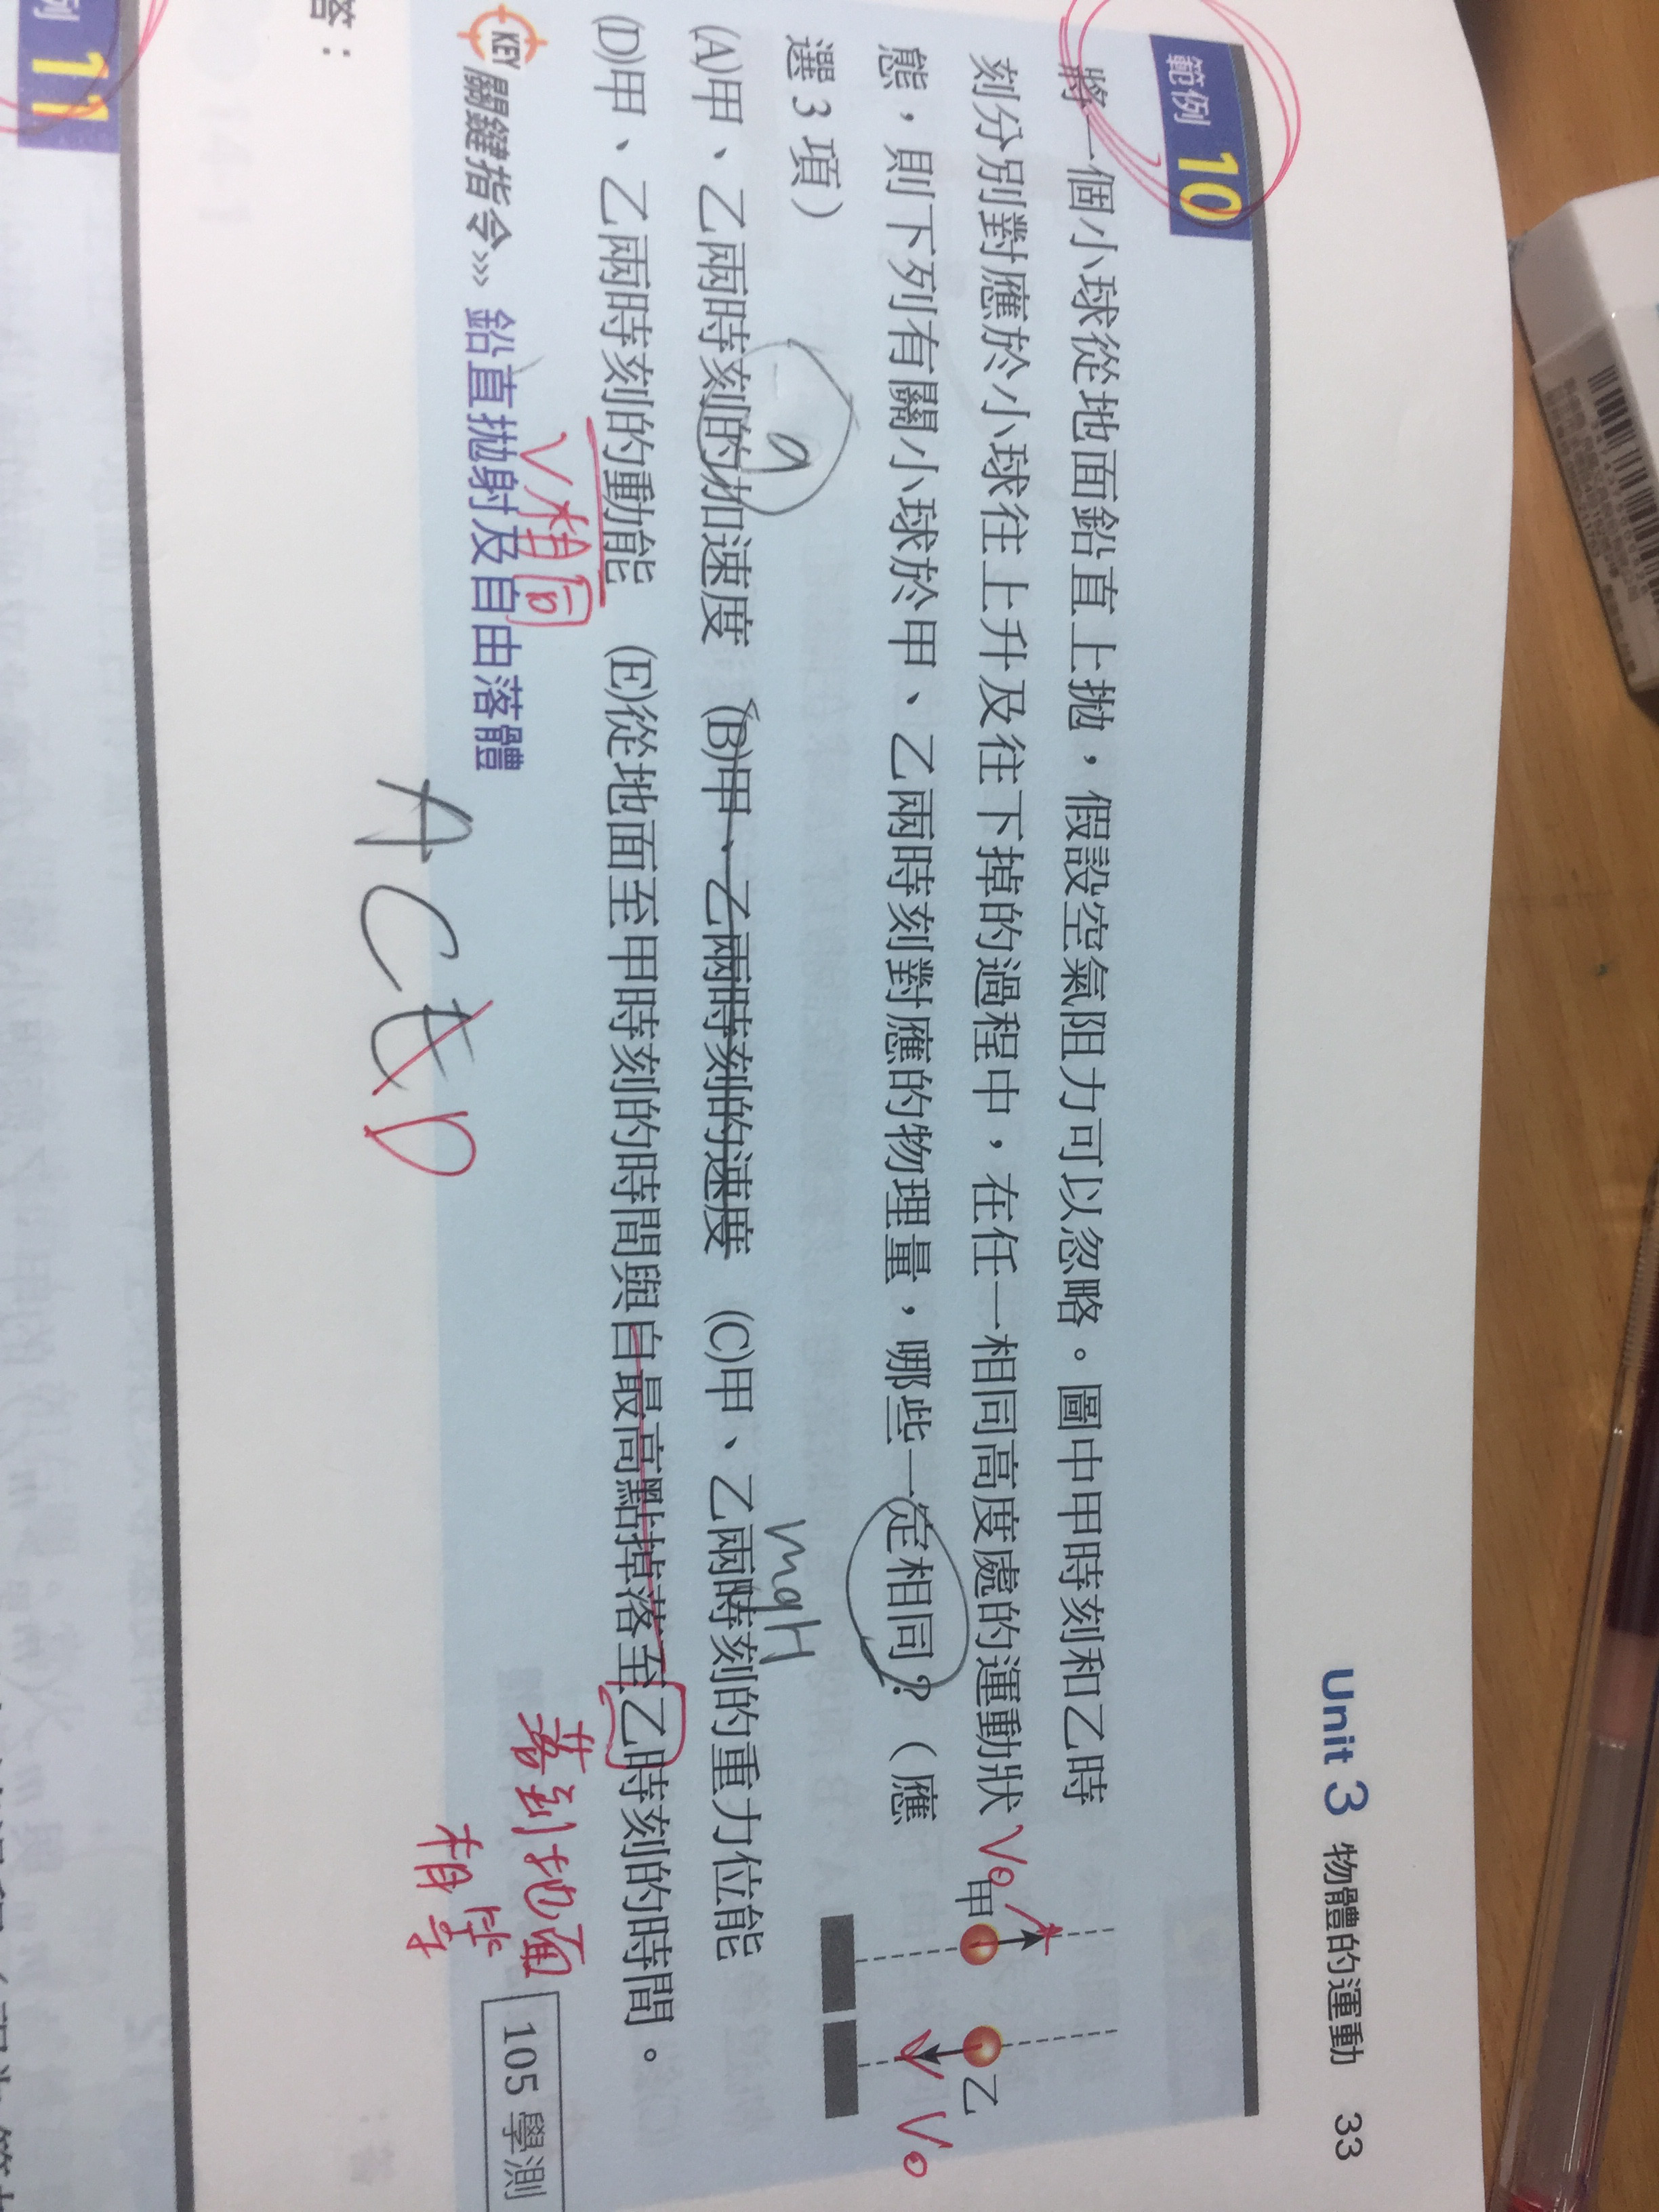 Unit 3 物體的運動 33
範例 10
將一個小球從地面鉛直上拋，假設空氣阻力可以忽略。圖中甲時刻和乙時
刻分別對應於小球往上升及往下掉的過程中，在任一相同高度處的運動狀
態，則下列有關小球於甲、乙兩時刻對應的物理量，哪些一定相同？（應
選 3 項）
V0
甲
乙
V0
a
mgH
(A)甲、乙兩時刻的加速度 (B)甲、乙兩時刻的速度 (C)甲、乙兩時刻的重力位能
(D)甲、乙兩時刻的動能 (E)從地面至甲時刻的時間與自最高點掉落至乙時刻的時間。
V相同
落到地面
相等
KEY 關鍵指令>>> 鉛直拋射及自由落體
105 學測
A C E D
答：
例 11